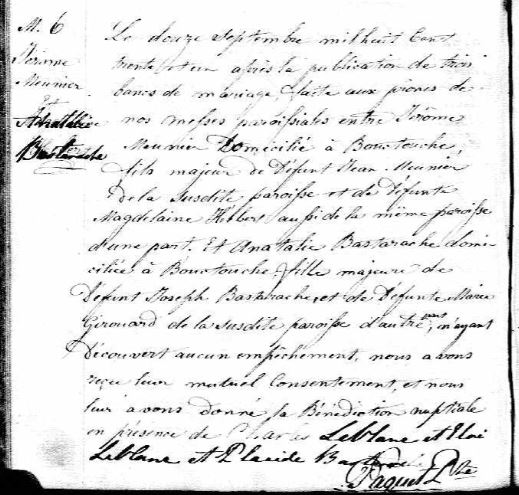 M. 6
Jérome
Meunier
et
Anatalie
Bastarache
Le douze Septembre mil huit Cent
trente et un après la publication de trois
bancs de mariage, faite aux prones de
nos messes paroissiales entre Jérome
Meunier Domicilié à Bouctouche,
fils majeur de Défunt Jean Meunier
de la susdite paroisse et de Défunte
Magdelaine Hebert aussi de la même paroisse
d'une part, Et Anatalie Bastarache domi
ciliée à Bouctouche, fille majeure de
Défunt Joseph Bastarache, et de Défunte Marie
Girouard de la susdite paroisse d'autre part, n'ayant
Découvert aucun empêchement, nous avons
reçu leur mutuel Consentement, et nous
leur avons donné la Bénédiction nuptiale
en présence de Charles LeBlanc et
LeBlanc et Placide
Paquet Ptre